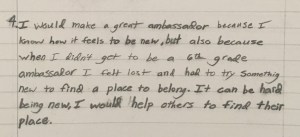 4. I would make a great ambassador because I
know how it feels to be new, but also because
when I didn't get to be a 6th grade
ambassador I felt lost and had to try somethig
new to find a place to belong. It can be hard
being new, I would help others to find their
place.